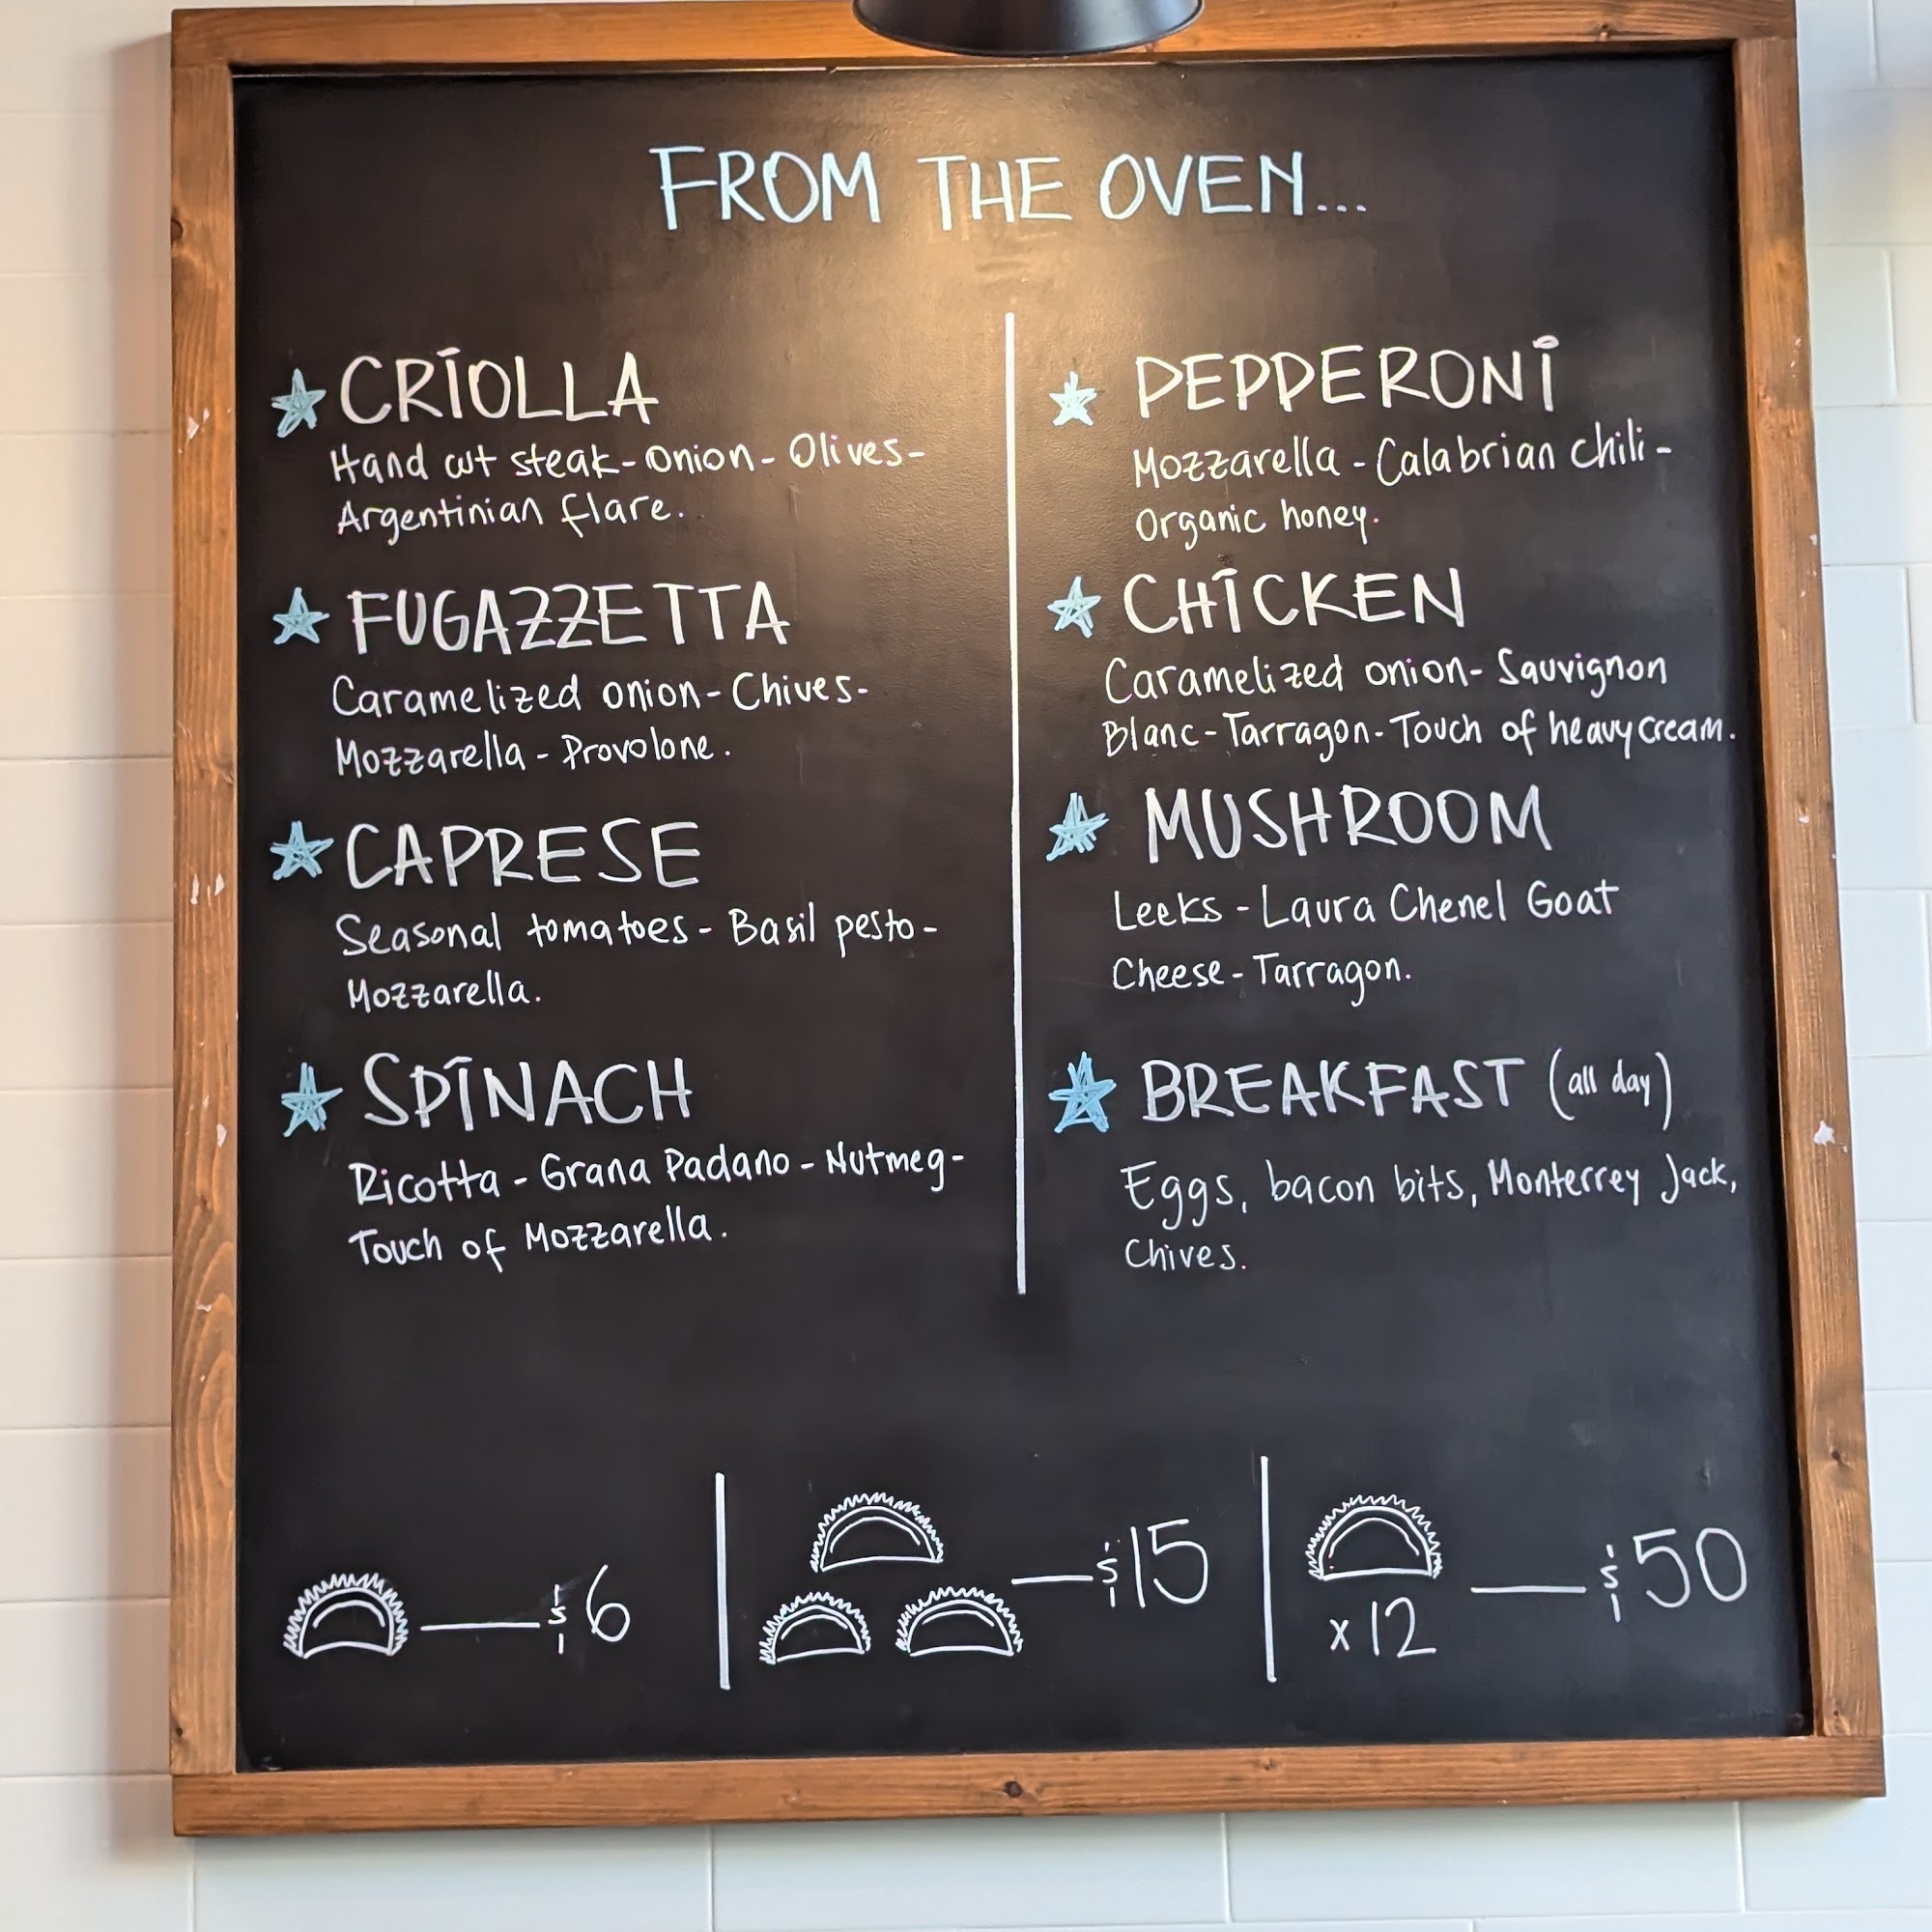 FROM THE OVEN...
CRIOLLA
Hand cut steak-Onion-Olives-
Argentinian flare.
FUGAZZETTA
Caramelized onion-Chives-
Mozzarella-Provolone.
CAPRESE
Seasonal tomatoes-Basil pesto-
Mozzarella.
SPINACH
Ricotta-Grana Padano-Nutmeg-
Touch of Mozzarella.
PEPPERONI
Mozzarella-Calabrian chili-
Organic honey.
CHICKEN
Caramelized onion-Sauvignon
Blanc-Tarragon-Touch of heavy cream.
MUSHROOM
Leeks-Laura Chenel Goat
Cheese-Tarragon.
BREAKFAST (all day)
Eggs, bacon bits, Monterrey Jack,
Chives.
$6
$15
x12 $50